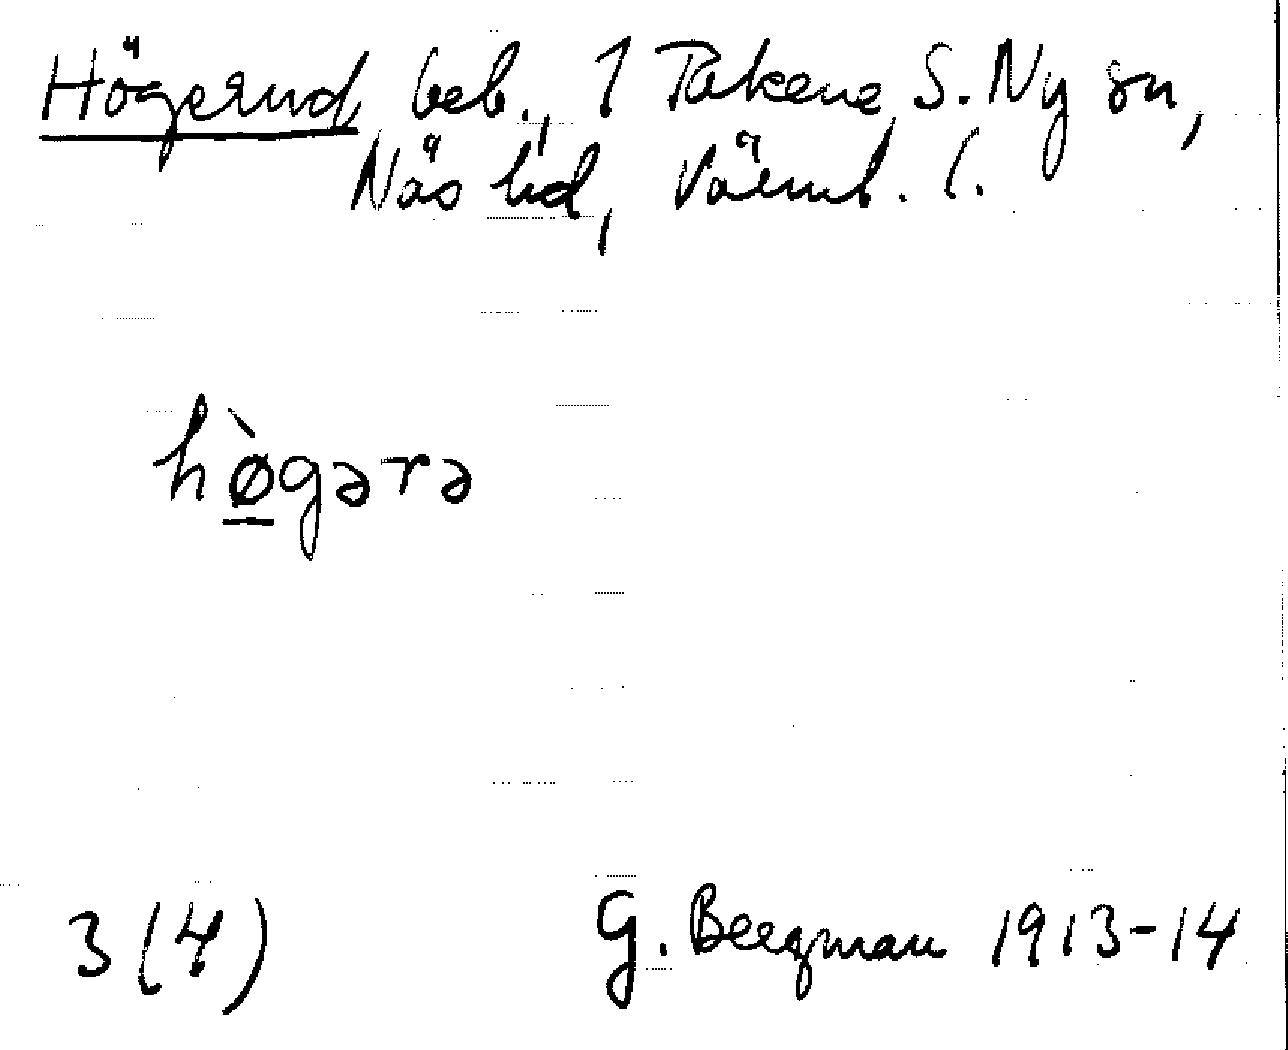 Högerud, beb., 1 Takene, S. Ny sn,
Näs hd, Värml. l.
hø̱̀gərə
3 (4)
G. Bergman 1913-14